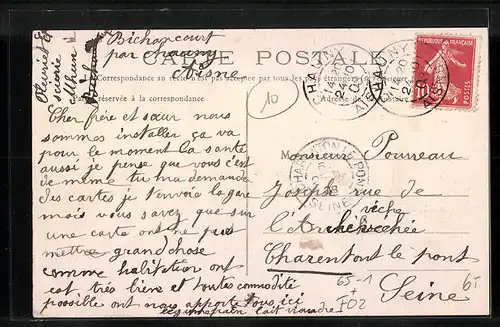 Bichancourt
par Chauny
Aisne
CARTE POSTALE
Correspondance au recto n'est pas acceptée par tous les pays étrangers
Partie réservée à la correspondance
CHAUNY
AISNE
CHAUNY
AISNE
REPUBLIQUE FRANÇAISE
POSTES
10
10
Cher frère et sœur nous
sommes installer ça va
pour le moment la santé
aussi je pense que vous c'est
de même tu ma demander
des cartes je t'envoie la gare
mais vous savez que sur
une carte ont ne peus
mettre grand chose
comme habitation ont
est très bien et toutes commodité
possible ont nous apporte tous ici
pain lait viande
Monsieur Pouveau
Joseph rue de
l'Archevêché
Charenton le pont
Seine
CHARENTON LE PONT
SEINE
65-1
F02